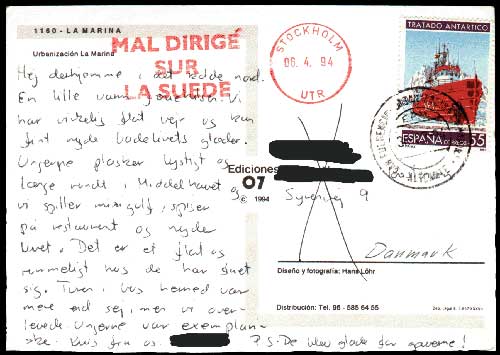 1160 - LA MARINA
Urbanización La Marina
MAL DIRIGÉ
SUR
LA SUEDE
STOCKHOLM
06. 4. 94
UTR
TRATADO ANTARTICO
ESPAÑA CORREOS 55
Hej derhjemme i det kolde nord.
En lille varm
har virkelig flot vejr og kan
nyde badelivets glæder.
Ungerne plasker lystigt og
længe rundt i Middelhavet og
vi spiller minigolf, spiser
på restaurant og nyder
livet. Det er et flot og
rummeligt hus de har
sig. Turen herned var
mere end sej, men vi over-
levede. Ungerne var eksemplar-
iske. Knus fra os.
P.S. De blev glade for gaverne!
Ediciones
07
© 1994
9
Danmark
Diseño y fotografía: Hans Löhr
Distribución: Tel. 96 - 585 64 55